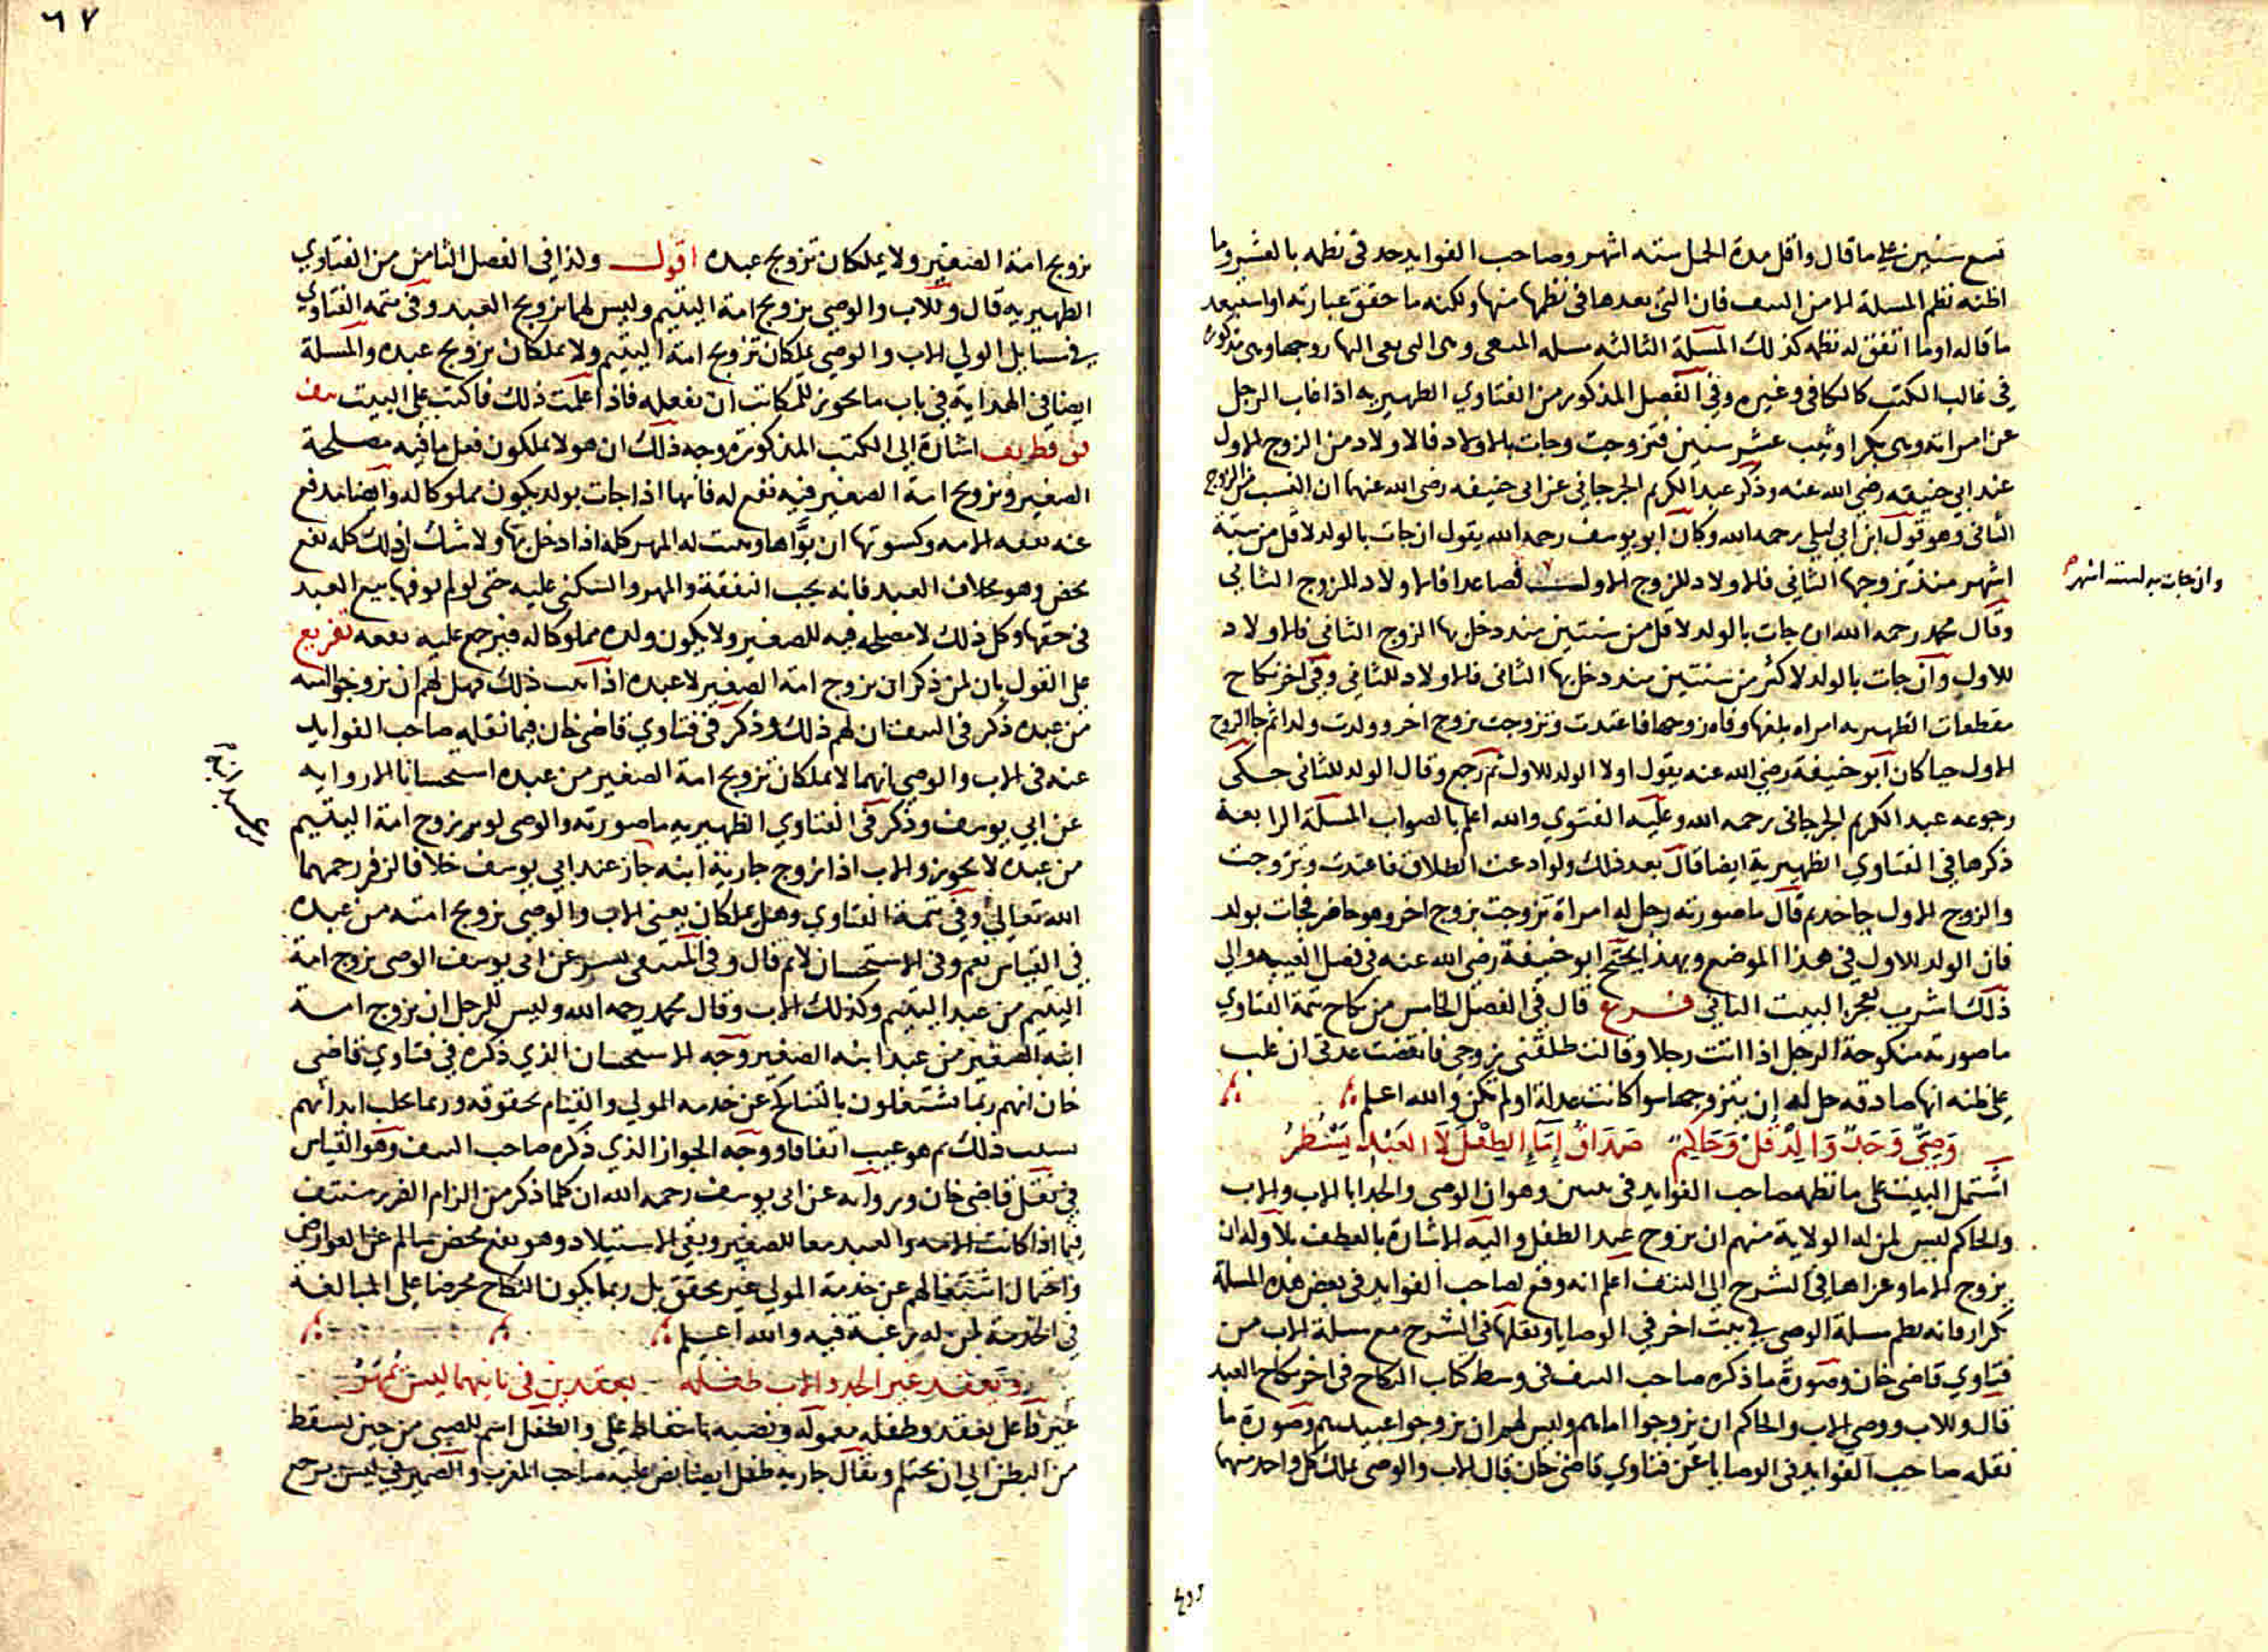 تسع سنين على ما قال واقل مدة الحمل ستة اشهر وصاحب الفوايد حد في نظمه بالعشر وما
اظنه نظم المسلة الا من النتف فان التي بعدها في نظمها منها ولكنه ما حقق عبارته او استبعد
ما قاله او ما اتفق له نظمه كذلك المسلة الثالثة مسلة المنعي وهي التي نعي اليها زوجها وهي مذكورة
في غالب الكتب كالكافي وغيره وفي الفصل المذكور من الفتاوي الظهيرية اذا غاب الرجل
عن امراته وهي بكر او ثيب عشر سنين فتزوجت وجات بالاولاد فالاولاد من الزوج الاول
عند ابي حنيفة رضي الله عنه وذكر عبد الكريم الجرجاني عن ابي حنيفة رضي الله عنهما ان النسب من الزوج
الثاني وهو قول ابن ابي ليلى رحمه الله وكان ابو يوسف رحمه الله يقول ان جات بالولد لاقل من ستة
اشهر منذ تزوجها الثاني فالاولاد للزوج الاول فصاعدا فالاولاد للزوج الثاني
وان جات به لستة اشهر
وقال محمد رحمه الله ان جات بالولد لاقل من سنتين منذ دخل بها الزوج الثاني فالاولاد
للاول وان جات بالولد لاكثر من سنتين منذ دخل بها الثاني فالاولاد للثاني وفي اخر نكاح
مقطعات الظهيرية امراة بلغها وفاة زوجها فاعتدت وتزوجت بزوج اخر وولدت ولدا ثم جا الزوج
الاول حيا كان ابو حنيفة رضي الله عنه يقول اولا الولد للاول ثم رجع وقال الولد للثاني حكى
رجوعه عبد الكريم الجرجاني رحمه الله وعليه الفتوي والله اعلم بالصواب المسلة الرابعة
ذكرها في الفتاوي الظهيرية ايضا قال بعد ذلك ولو ادعت الطلاق فاعتدت وتزوجت
والزوج الاول جاحد ثم قال ما صورته رجل له امراة تزوجت بزوج اخر وهو حاضر فجات بولد
فان الولد للاول في هذا الموضع وبهذا يحتج ابو حنيفة رضي الله عنه في فصل الغيبة والى
ذلك اشرت بعجز البيت الثاني فرع قال في الفصل الخامس من نكاح تتمة الفتاوي
ما صورته منكوحة الرجل اذا اتت رجلا وقالت طلقني زوجي فانقضت عدتي ان غلب
على ظنه انها صادقة حل له ان يتزوجها سوا كانت عدلة او لم تكن والله اعلم
وصي وجد والد قل وحاكم صداق إما الطفل لا العبد يسطر
اشتمل البيت على ما نظمه صاحب الفوايد في بيتين وهو ان الوصي والجد ابا الاب والاب
والحاكم ليس لمن له الولاية منهم ان يزوج عبد الطفل واليه الاشارة بالعطف بلا وله ان
يزوج الاما وعزاها في الشرح الى النتف اعلم انه وقع لصاحب الفوايد في بعض هذه المسلة
تكرار فانه نظم مسلة الوصي في بيت اخر في الوصايا ونقلها في الشرح مع مسلة الاب من
فتاوي قاضي خان وصورة ما ذكره صاحب النتف في وسط كتاب النكاح في اخر نكاح العبد
قال وللاب ووصي الاب والحاكم ان يزوجوا اماهم وليس لهم ان يزوجوا عبيدهم وصورة ما
نقله صاحب الفوايد في الوصايا عن فتاوي قاضي خان قال الاب والوصي يملك كل واحد منهما
تزوج
٦٧
تزويج امة الصغير ولا يملكان تزويج عبده اقول ولذا في الفصل الثامن من الفتاوي
الظهيرية قال وللاب والوصي تزويج امة اليتيم وليس لهما تزويج العبد وفي تتمة الفتاوي
في مسايل الولي الاب والوصي يملكان تزويج امة اليتيم ولا يملكان تزويج عبده والمسلة
ايضا في الهداية في باب ما يجوز للمكاتب ان يفعله فاذا علمت ذلك فاكتب على البيت نتف
اشارة الى الكتب المذكورة ووجه ذلك ان هولا يملكون فعل ما فيه مصلحة
الصغير وتزويج امة الصغير فيه نفع له فانها اذا جات بولد يكون مملوكا له وايضا تدفع
عنه نفقة الامة وكسوتها ان بوأها ويثبت له المهر كله اذا دخل بها ولا شك ان ذلك كله نفع
محض وهو بخلاف العبد فانه يجب النفقة والمهر والسكنى عليه حتى لو لم يوفها بيع العبد
في حقها وكل ذلك لا مصلحة فيه للصغير ولا يكون ولده مملوكا له فيرجع عليه نفعه تفريع
على القول بان لمن ذكر ان يزوج امة الصغير لا عبده اذا ثبت ذلك فهل لهم ان يزوجوا امته
من عبده ذكر في النتف ان لهم ذلك وذكر في فتاوي قاضي خان فيما نقله صاحب الفوايد
عنه في الاب والوصي انهما لا يملكان تزويج امة الصغير من عبده استحسانا الا رواية
عن ابي يوسف وذكر في الفتاوي الظهيرية ما صورته والوصي لو زوج امة اليتيم
من عبده لا يجوز والاب اذا زوج جارية ابنه جاز عند ابي يوسف خلافا لزفر رحمهما
الله تعالى وفي تتمة الفتاوي وهل يملكان يعني الاب والوصي تزويج امته من عبده
في القياس نعم وفي الاستحسان لا ثم قال وفي المنتقى بشر عن ابي يوسف الوصي يزوج امة
اليتيم من عبد اليتيم وكذلك الاب وقال محمد رحمه الله وليس للرجل ان يزوج امة
ابنه الصغير من عبد ابنه الصغير وجه الاستحسان الذي ذكره في فتاوي قاضي
خان انهم ربما يشتغلون بالتناكح عن خدمة المولى والقيام بحقوقه وربما
بسبب ذلك ثم هو عيب اتفاقا ووجه الجواز الذي ذكره صاحب النتف وهو القياس
في نقل قاضي خان ورواية عن ابي يوسف رحمه الله ان كلما ذكر من الزام الضرر منتف
فيما اذا كانت الامة والعبد معا للصغير وبقي الاستيلاد وهو نفع محض سالم عن العوارض
واحتمال اشتغالهم عن خدمة المولى غير محقق بل ربما يكون النكاح محرضا على المبالغة
في الخدمة لمن له رغبة فيه والله اعلم
ويعقد غير الجد والاب طفله بعقدين في ثانيهما ليس يمهر
غير فاعل يعقد وطفله مفعوله ونصبه والطفل اسم للصبي من حين يسقط
من البطن الى ان يحتلم ويقال جارية طفل ايضا نص عليه صاحب المغرب والضمير في ليس يرجع